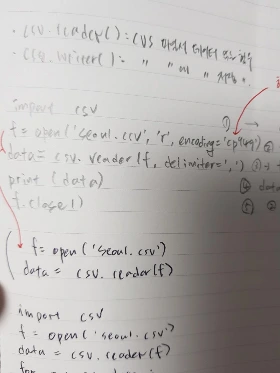 · csv.reader() : CVS 파일에서 데이터 읽는 함수
· csv.writer() : " " 에 " 저장 "
import csv
f = open('seoul.csv', 'r', encoding='cp949') ②
data = csv.reader(f, delimiter=',')
print (data)
④ data
f.close()
f = open('seoul.csv')
data = csv.reader(f)
import csv
f = open('seoul.csv')
data = csv.reader(f)
for